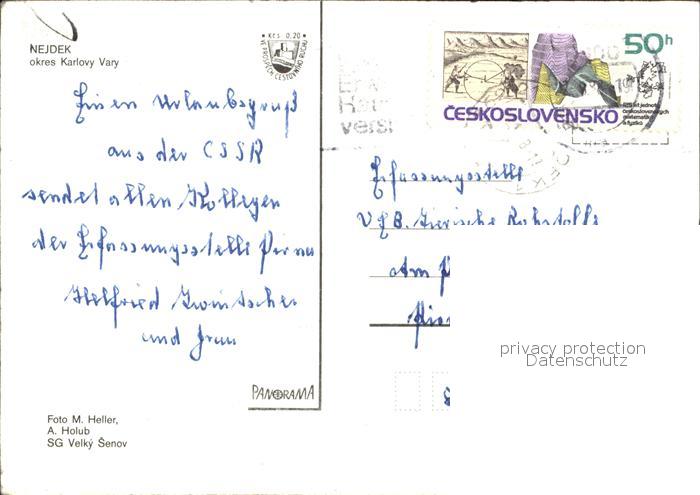 NEJDEK
okres Karlovy Vary
Kčs 0,20
VE PROSPĚCH CESTOVNÍHO RUCHU
Einen Urlaubsgruß
aus der CSSR
sendet allen Kollegen
der Erfassungsstelle Pirna
Helfried
und Frau
PANORAMA
Foto M. Heller,
A. Holub
SG Velký Šenov
50h
ČESKOSLOVENSKO
125 let jednoty
československých
matematiků
a fyziků
Erfassungsstelle
VEB. Tierische Rohstoffe
Am
privacy protection
Datenschutz